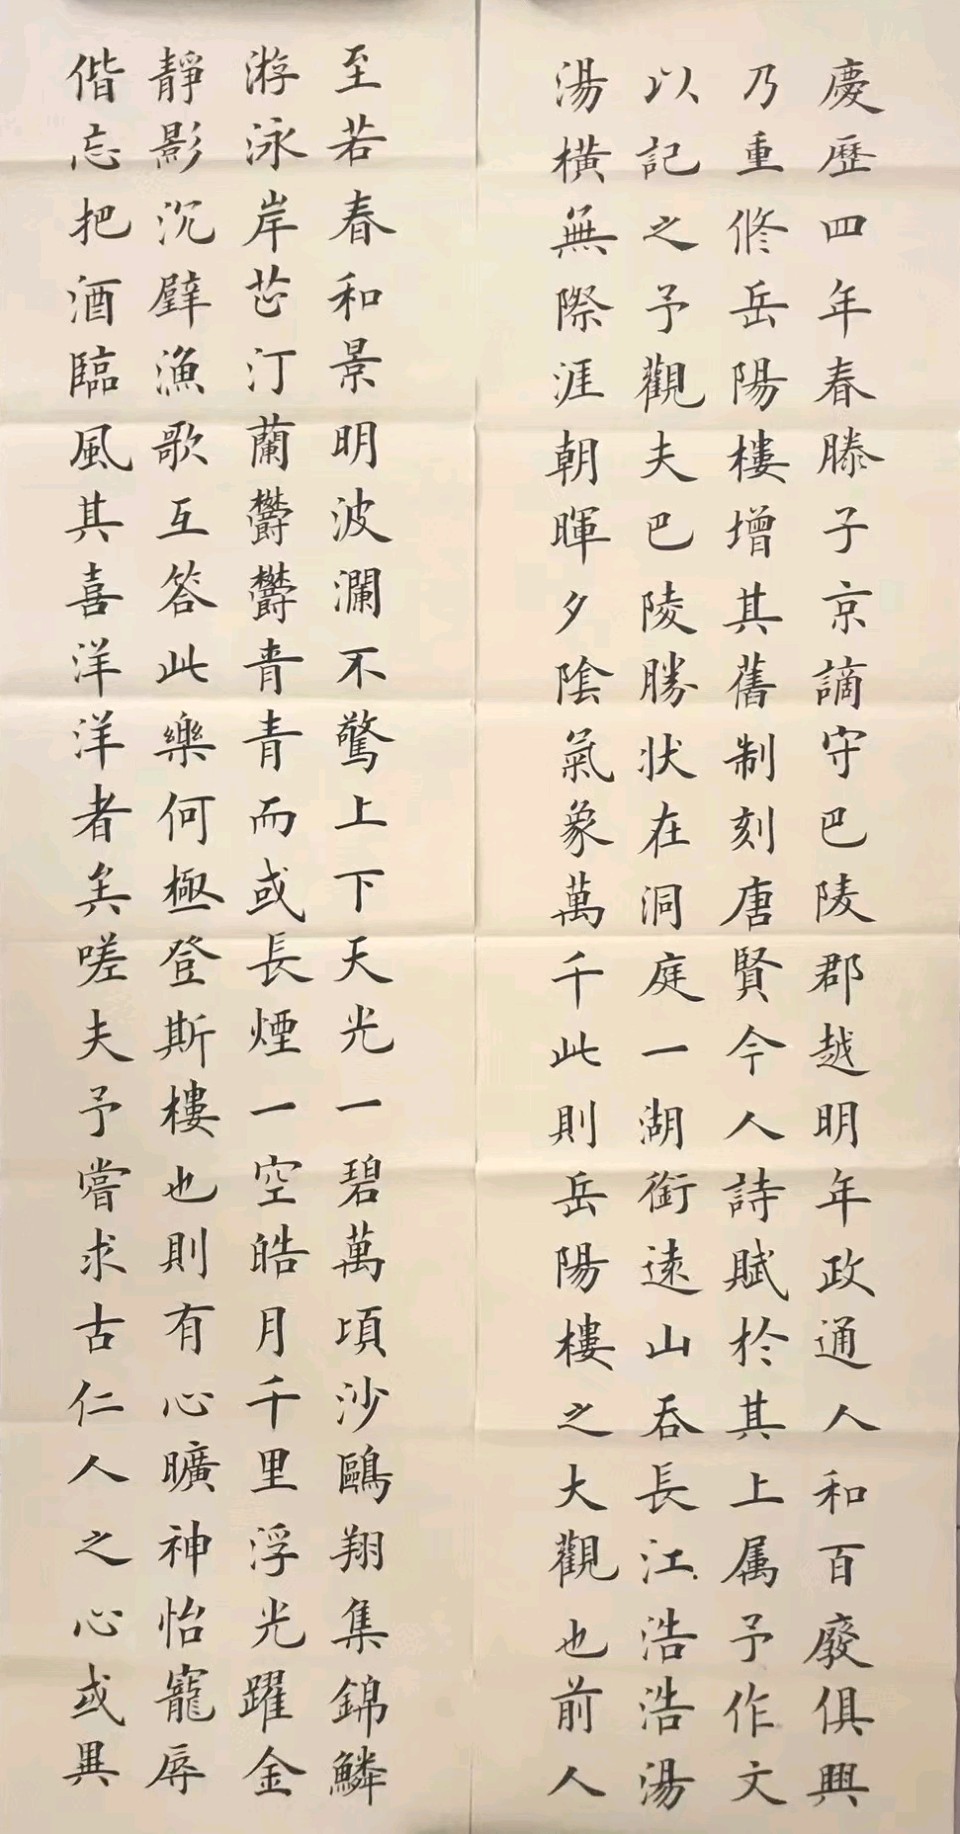 慶歷四年春滕子京謫守巴陵郡越明年政通人和百廢俱興
乃重修岳陽樓增其舊制刻唐賢今人詩賦於其上属予作文
以記之予觀夫巴陵勝狀在洞庭一湖銜遠山吞長江浩浩湯
湯橫無際涯朝暉夕陰氣象萬千此則岳陽樓之大觀也前人
至若春和景明波瀾不驚上下天光一碧萬頃沙鷗翔集錦鱗
游泳岸芷汀蘭欝欝青青而或長煙一空皓月千里浮光躍金
靜影沉璧漁歌互答此樂何極登斯樓也則有心曠神怡寵辱
偕忘把酒臨風其喜洋洋者矣嗟夫予嘗求古仁人之心或異